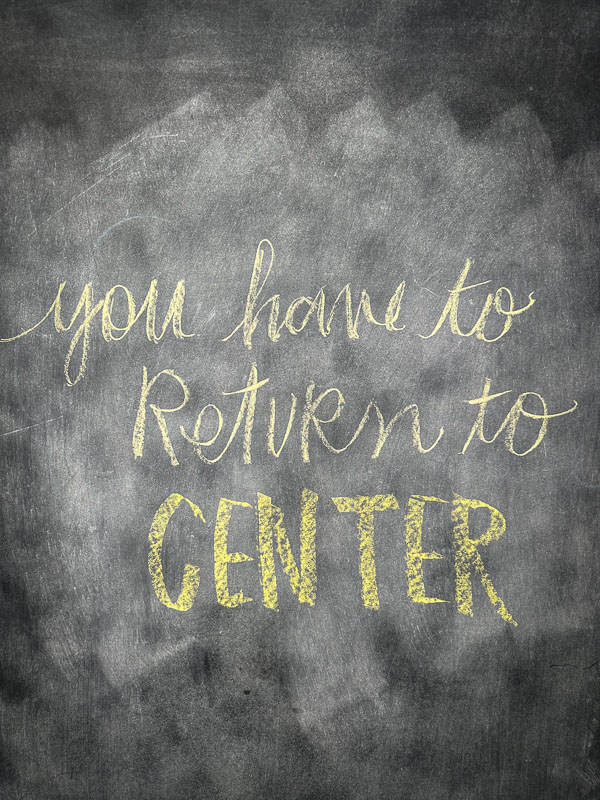 you have to
Return to
CENTER